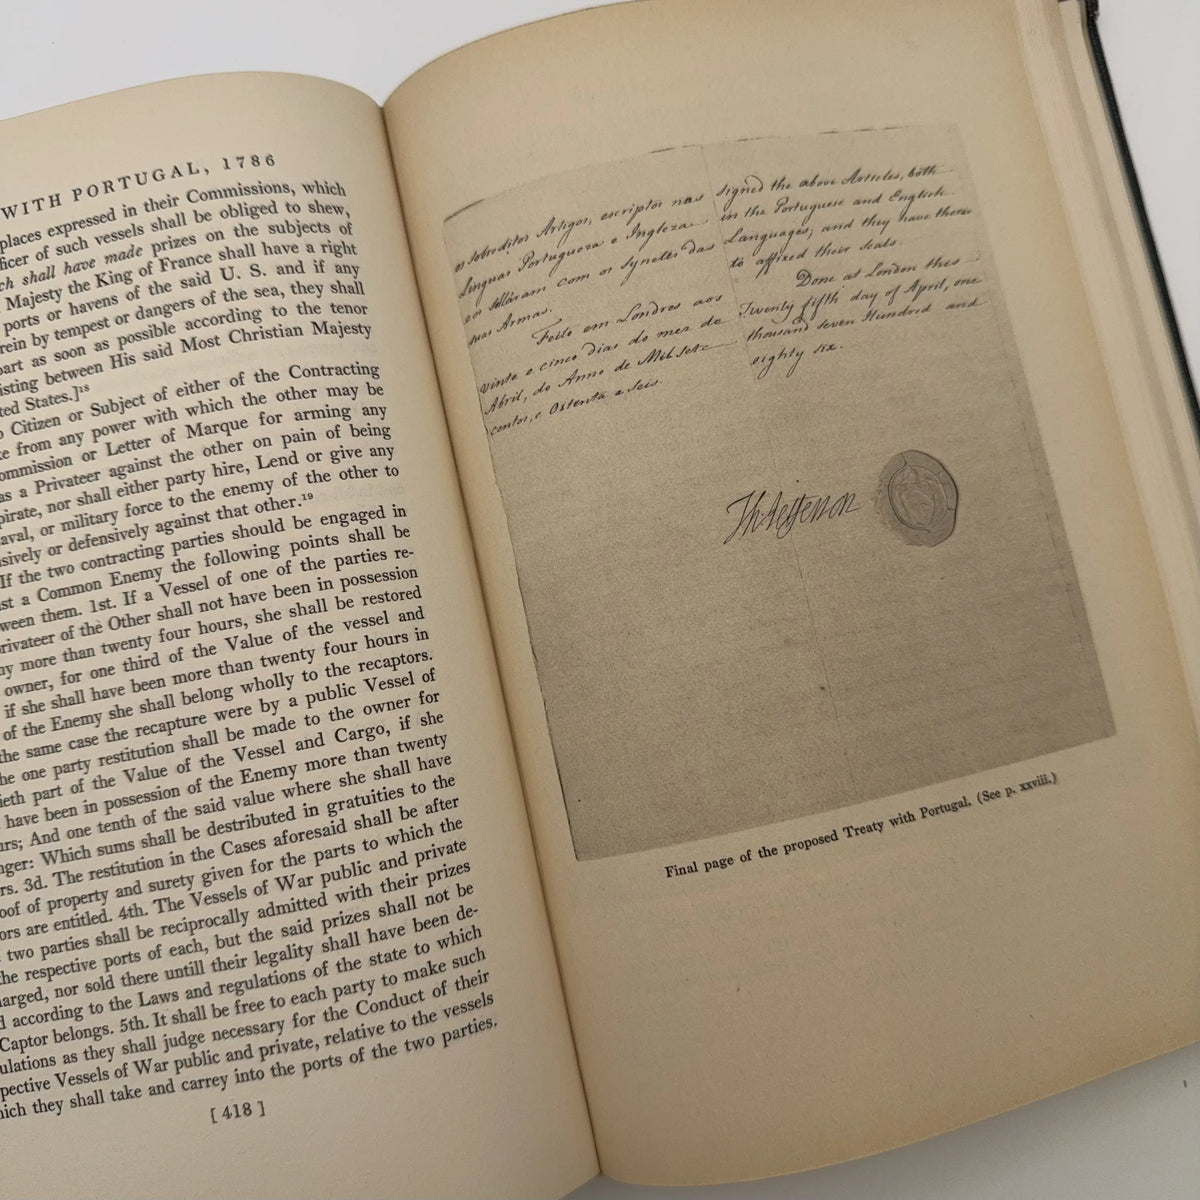 WITH PORTUGAL, 1786
places expressed in their Commissions, which
of such vessels shall be obliged to shew,
shall have made prizes on the subjects of
Majesty the King of France shall have a right
ports or havens of the said U. S. and if any
by tempest or dangers of the sea, they shall
as soon as possible according to the tenor
between His said Most Christian Majesty
States.]¹⁸
Citizen or Subject of either of the Contracting
from any power with which the other may be
or Letter of Marque for arming any
as a Privateer against the other on pain of being
pirate, nor shall either party hire, Lend or give any
or military force to the enemy of the other to
or defensively against that other.¹⁹
If the two contracting parties should be engaged in
a Common Enemy the following points shall be
them. 1st. If a Vessel of one of the parties re-
of the Other shall not have been in possession
more than twenty four hours, she shall be restored
owner, for one third of the Value of the vessel and
if she shall have been more than twenty four hours in
of the Enemy she shall belong wholly to the recaptors.
the same case the recapture were by a public Vessel of
one party restitution shall be made to the owner for
part of the Value of the Vessel and Cargo, if she
have been in possession of the Enemy more than twenty
And one tenth of the said value where she shall have
Which sums shall be destributed in gratuities to the
3d. The restitution in the Cases aforesaid shall be after
of property and surety given for the parts to which the
are entitled. 4th. The Vessels of War public and private
two parties shall be reciprocally admitted with their prizes
the respective ports of each, but the said prizes shall not be
nor sold there untill their legality shall have been de-
according to the Laws and regulations of the state to which
Captor belongs. 5th. It shall be free to each party to make such
as they shall judge necessary for the Conduct of their
Vessels of War public and private, relative to the vessels
they shall take and carrey into the ports of the two parties.
[ 418 ]
os sobreditos Artigos, escriptos nas
Linguas Portugueza e Ingleza
e os selláram com os Synetes das
suas Armas.
Feito em Londres aos
vinte e cinco dias do mes de
Abril, do Anno de Mil Sete-
centos, e Ostenta e seis.
signed the above Articles, both
in the Portuguese and English
Languages; and they have thereto
to affixed their seals.
Done at London this
Twenty fifth day of April, one
thousand seven Hundred and
eighty six.
Th Jefferson
Final page of the proposed Treaty with Portugal. (See p. xxviii.)